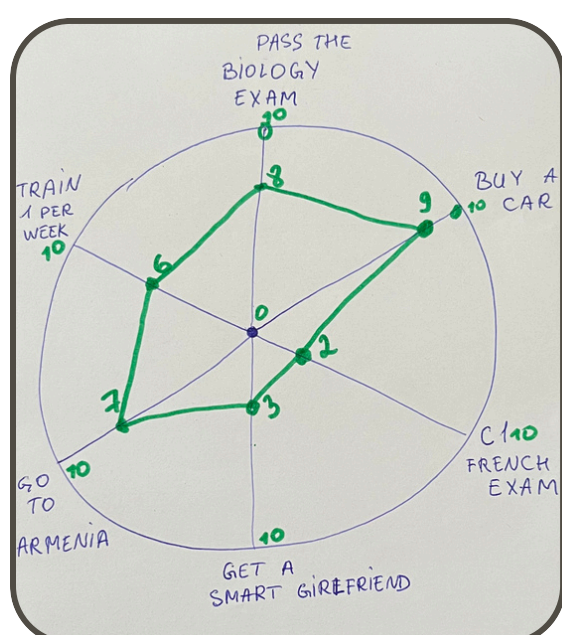 PASS THE
BIOLOGY
EXAM
10
8
BUY A
CAR
10
9
TRAIN
1 PER
WEEK
10
6
0
2
7
3
C1 10
FRENCH
EXAM
GO
TO
ARMENIA
10
10
GET A
SMART GIRLFRIEND